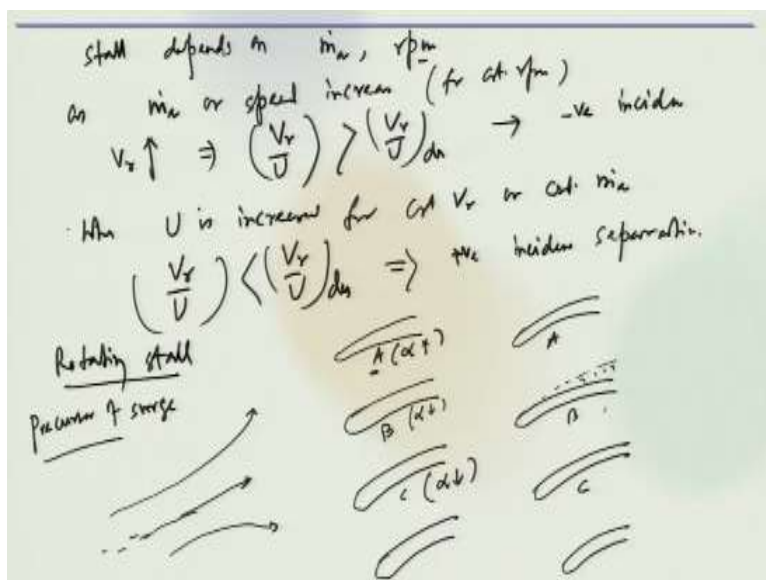 stall depends on ṁa, rpm
as ṁa or speed increases (for cst. rpm)
Vr↑ ⇒ (Vr/U) > (Vr/U)des → -ve inciden
When U is increased for cst Vr or cst. ṁa
(Vr/U) < (Vr/U)des ⇒ +ve incidence separation.
Rotating stall
Precursor of surge
A (α↑)
A
B (α↓)
B
C (α↓)
C